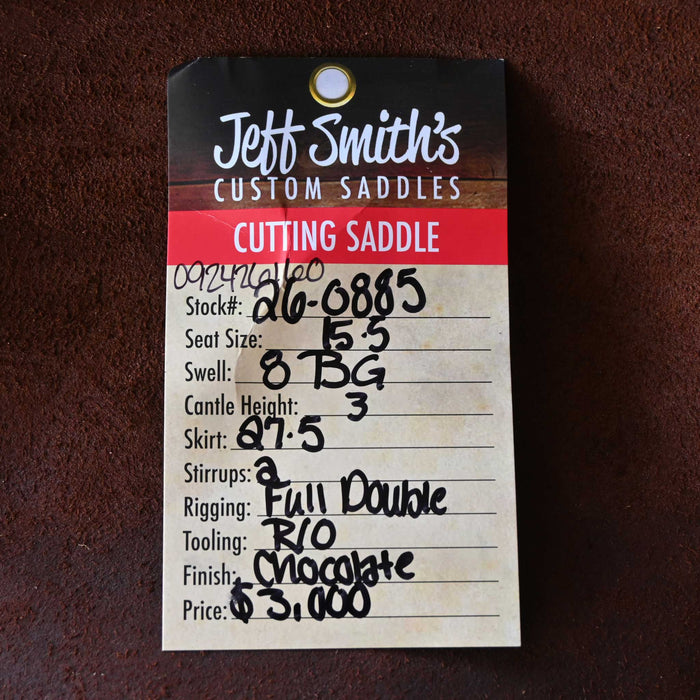 Jeff Smith's
CUSTOM SADDLES
CUTTING SADDLE
Stock#: 26-0885
Seat Size: 15.5
Swell: 8 BG
Cantle Height: 3
Skirt: 27.5
Stirrups: 2
Rigging: Full Double
Tooling: R/O
Finish: Chocolate
Price: $3,000